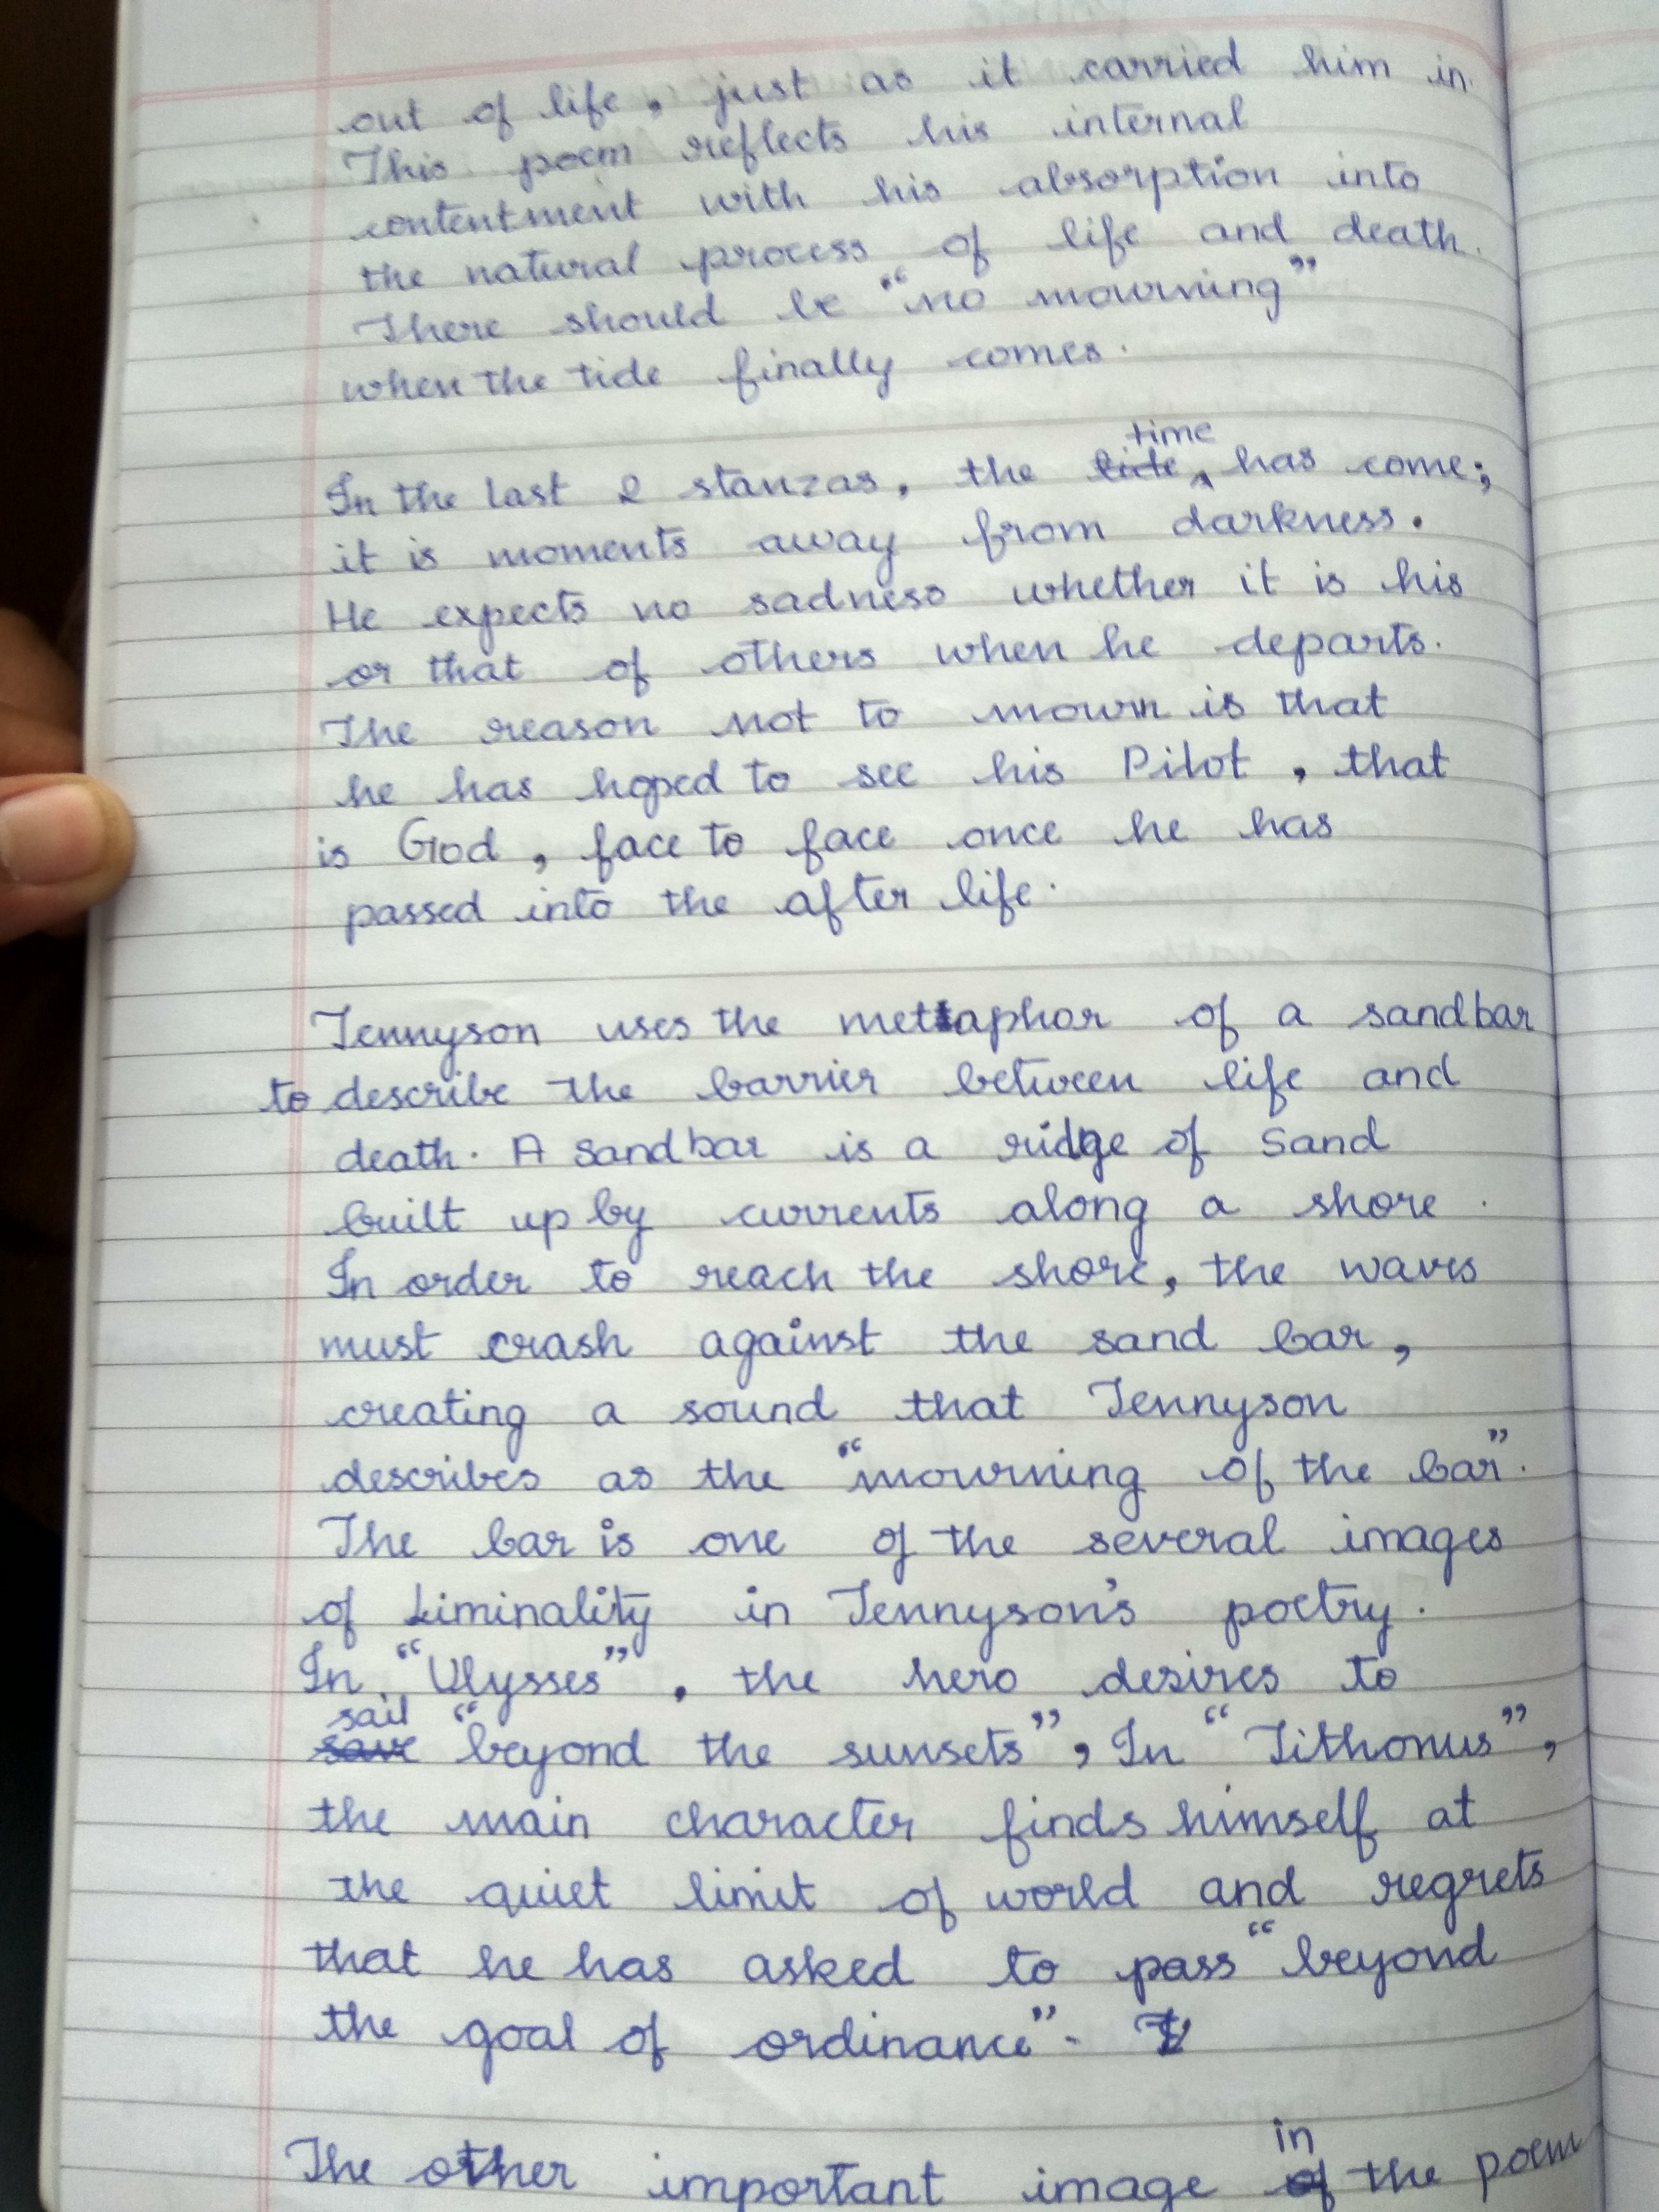 out of life, just as it carried him in.
This poem reflects his internal
contentment with his absorption into
the natural process of life and death.
There should be "no mourning"
when the tide finally comes.
In the last 2 stanzas, the time has come;
it is moments away from darkness.
He expects no sadness whether it is his
or that of others when he departs.
The reason not to mourn is that
he has hoped to see his Pilot, that
is God, face to face once he has
passed into the after life.
Tennyson uses the metaphor of a sandbar
to describe the barrier between life and
death. A sandbar is a ridge of Sand
built up by currents along a shore.
In order to reach the shore, the waves
must crash against the sand bar,
creating a sound that Tennyson
describes as the "mourning of the bar".
The bar is one of the several images
of Liminality in Tennyson's poetry.
In "Ulysses", the hero desires to
sail "beyond the sunsets", In "Tithonus",
the main character finds himself at
the quiet limit of world and regrets
that he has asked to pass "beyond
the goal of ordinance".
The other important image in the poem